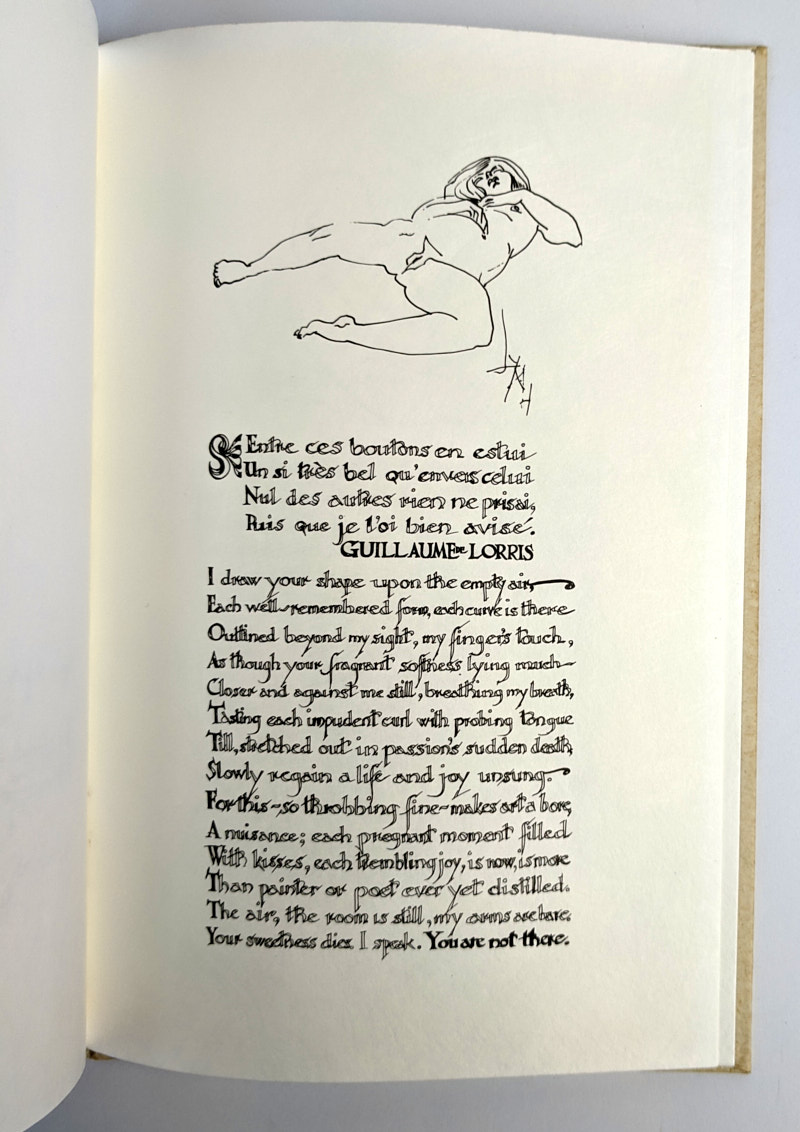 Entre ces boutons en eslui
Un si très bel qu'envers celui
Nul des autres rien ne prisai,
Puis que je l'oi bien avisé.
GUILLAUME DE LORRIS
I draw your shape upon the empty air,
Each well-remembered form, each curve is there
Outlined beyond my sight, my finger's touch,
As though your fragrant softness lying much
Closer and against me still, breathing my breath,
Tasting each impudent curl with probing tongue
Till, stretched out in passion's sudden death,
Slowly regain a life and joy unsung.
For this - so throbbing fine - makes art a bore,
A nuisance; each pregnant moment filled
With kisses, each trembling joy, is now, is more
Than painter or poet ever yet distilled.
The air, the room is still, my arms are bare.
Your sweetness dies. I speak. You are not there.